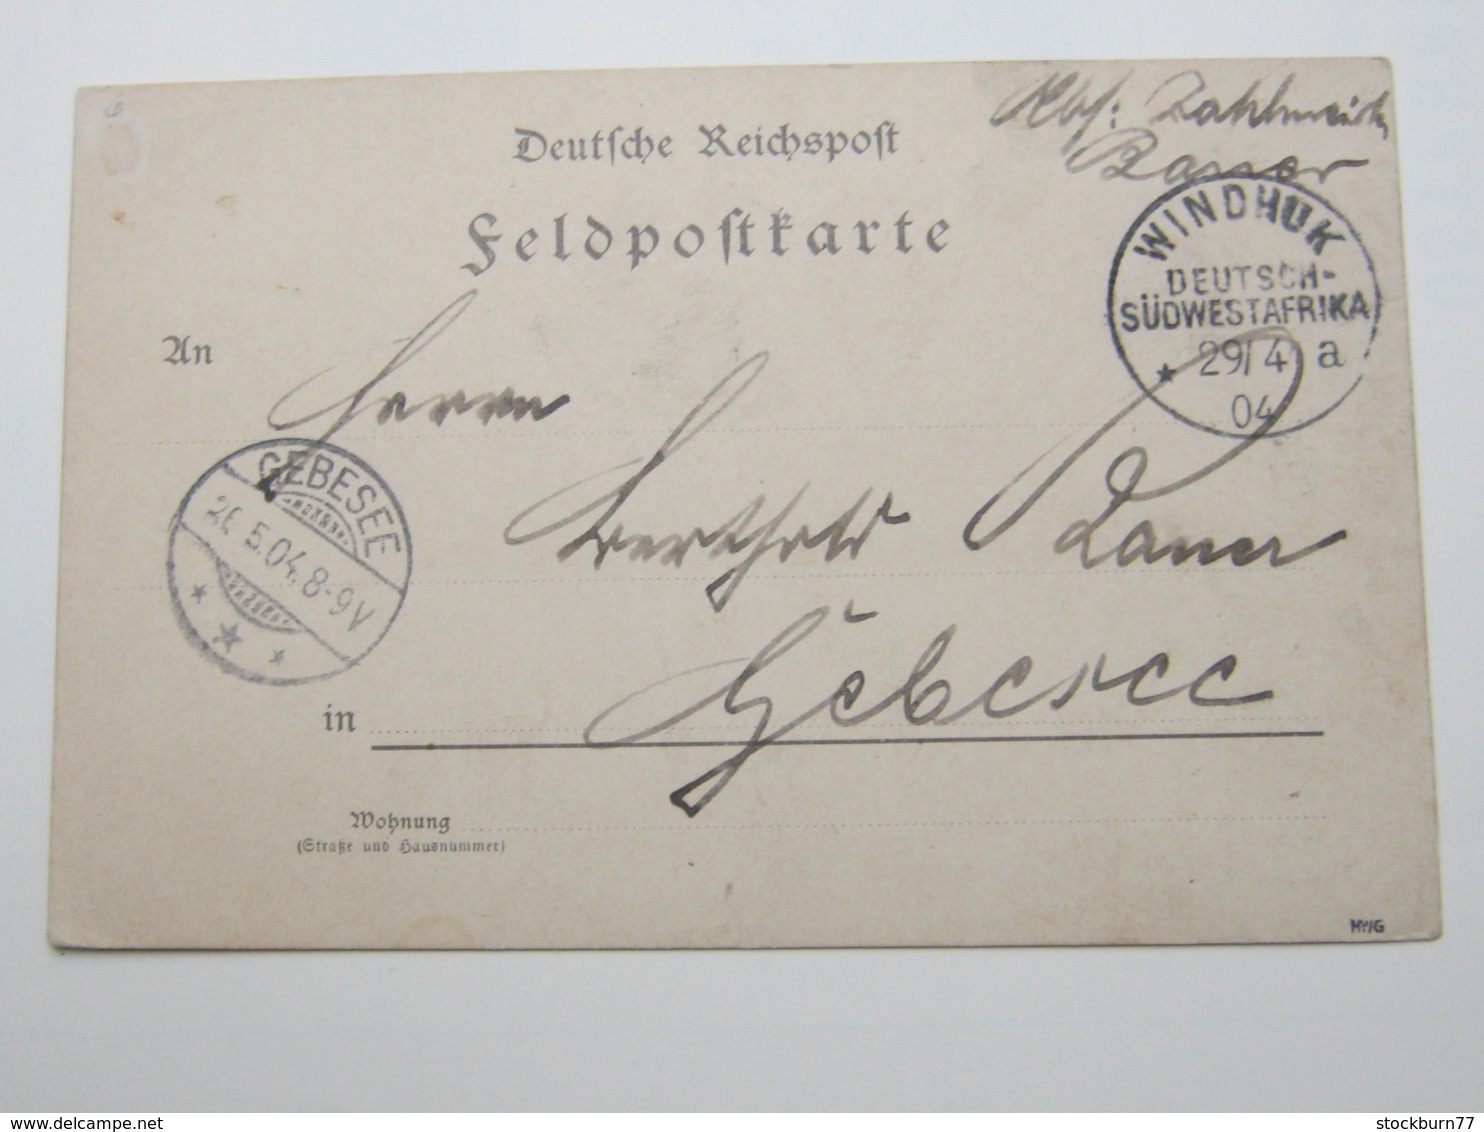 6
Abs: Zahlmeister
Deutsche Reichspost
Feldpostkarte
WINDHUK
DEUTSCH-
SÜDWESTAFRIKA
29/4 a
04
An
Herrn
Berthold
GEBESEE
26.5.04.8-9V
in Gebesee
Wohnung
(Straße und Hausnummer)
HWG
delcampe.net
stockburn77